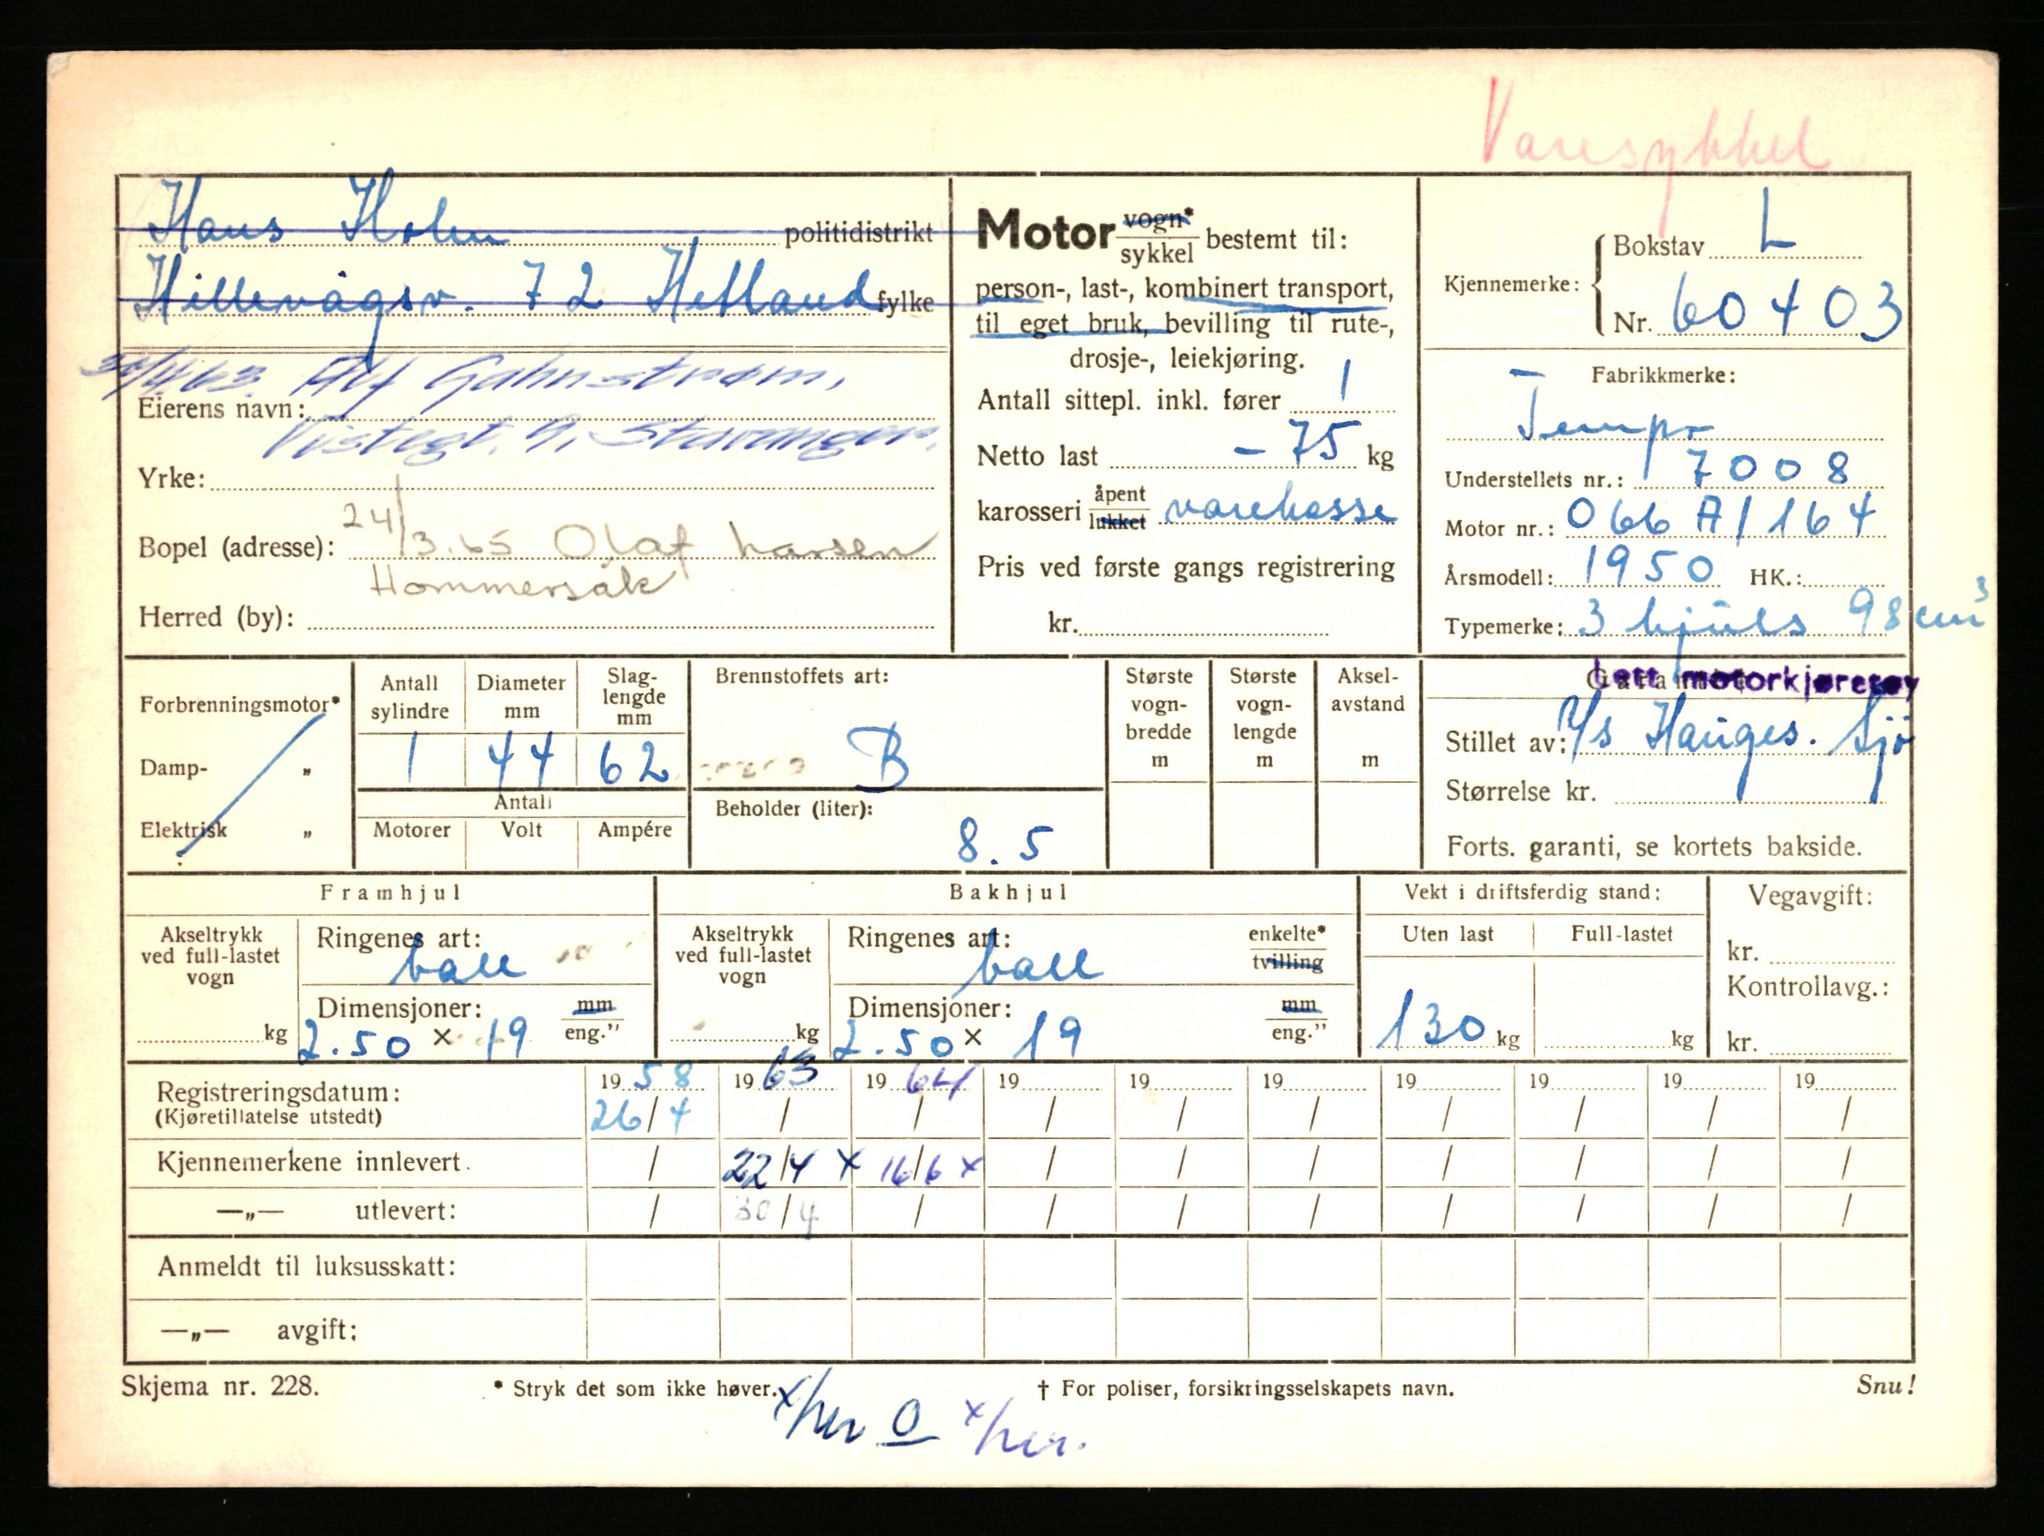 Varesykkel
Hans Holm politidistrikt
Hillevågsv. 72 Hetland fylke
30/4 63. Alf Gahnstrøm,
Eierens navn:
Vistegt. 9, Stavanger.
Yrke:
24/3.65 Olaf Larsen
Bopel (adresse):
Hommersåk
Herred (by):
Motor vogn* / sykkel bestemt til:
person-, last-, kombinert transport,
til eget bruk, bevilling til rute-,
drosje-, leiekjøring.
Antall sittepl. inkl. fører 1
Netto last – 75 kg
karosseri åpent / lukket varekasse
Pris ved første gangs registrering
kr.
Kjennemerke: Bokstav L
Nr. 60403
Fabrikkmerke:
Tempo
Understellets nr.: 7008
Motor nr.: 066 A/164
Årsmodell: 1950 HK.:
Typemerke: 3 hjuls 98 cm3
Forbrenningsmotor*
Damp- „
Elektrisk „
Antall sylindre 1
Diameter mm 44
Slaglengde mm 62
Antall
Motorer Volt Ampére
Brennstoffets art:
B
Beholder (liter):
8.5
Største vognbredde m
Største vognlengde m
Akselavstand m
Lett motorkjøretøy
Stillet av: Hauges. Sjø
Størrelse kr.
Forts. garanti, se kortets bakside.
Framhjul
Akseltrykk ved full-lastet vogn kg
Ringenes art: ball
Dimensjoner: mm / eng.”
2.50 × 19
Bakhjul
Akseltrykk ved full-lastet vogn kg
Ringenes art: ball
enkelte* / tvilling
Dimensjoner: mm / eng.”
2.50 × 19
Vekt i driftsferdig stand:
Uten last Full-lastet
130 kg kg
Vegavgift:
kr.
Kontrollavg.:
kr.
Registreringsdatum: 19 58 19 63 19 64 19 19 19 19 19 19 19
(Kjøretillatelse utstedt) 26/4 / / / / / / / / /
Kjennemerkene innlevert. / 22/4 x 16/6 x / / / / / / /
—„— utlevert: / 30/4 / / / / / / / /
Anmeldt til luksusskatt:
—„— avgift:
Skjema nr. 228. * Stryk det som ikke høver. † For poliser, forsikringsselskapets navn. Snu!
x/her O x/her.